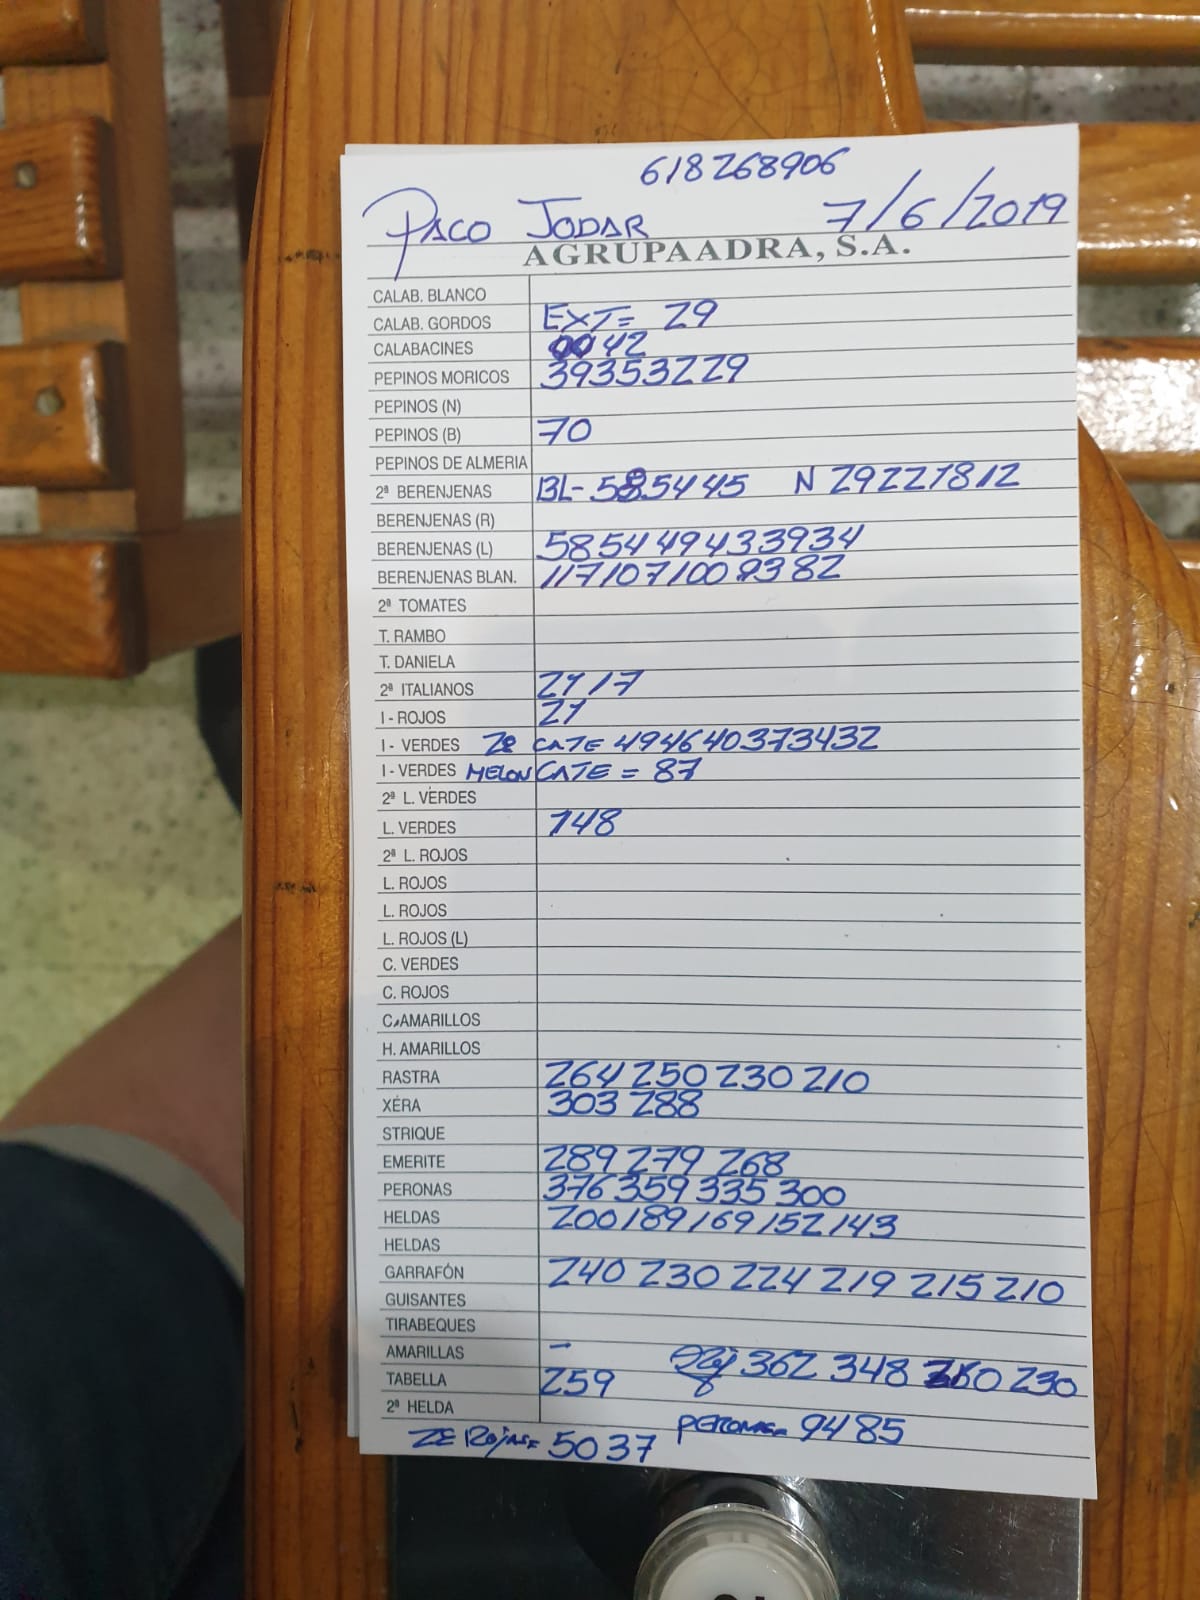 618268906
PACO JODAR 7/6/2019
AGRUPAADRA, S.A.
CALAB. BLANCO
CALAB. GORDOS EXT= 29
CALABACINES 0042
PEPINOS MORICOS 39353229
PEPINOS (N)
PEPINOS (B) 70
PEPINOS DE ALMERIA
2ª BERENJENAS BL- 585445 N 29221812
BERENJENAS (R)
BERENJENAS (L) 58544949433934
BERENJENAS BLAN. 117107100 9382
2ª TOMATES
T. RAMBO
T. DANIELA
2ª ITALIANOS 2117
I - ROJOS 21
I - VERDES 2ª CATE 494640373432
I - VERDES MELON CATE = 87
2ª L. VERDES
L. VERDES 148
2ª L. ROJOS
L. ROJOS
L. ROJOS
L. ROJOS (L)
C. VERDES
C. ROJOS
C. AMARILLOS
H. AMARILLOS
RASTRA 264 250 230 210
XÉRA 303 288
STRIQUE
EMERITE 289 279 268
PERONAS 376 359 335 300
HELDAS 200 189 169 152 143
HELDAS
GARRAFÓN 240 230 224 219 215 210
GUISANTES
TIRABEQUES
AMARILLAS -
TABELLA 259 362 348 230
2ª HELDA
2ª Rojas= 5037 PERONAS- 9485